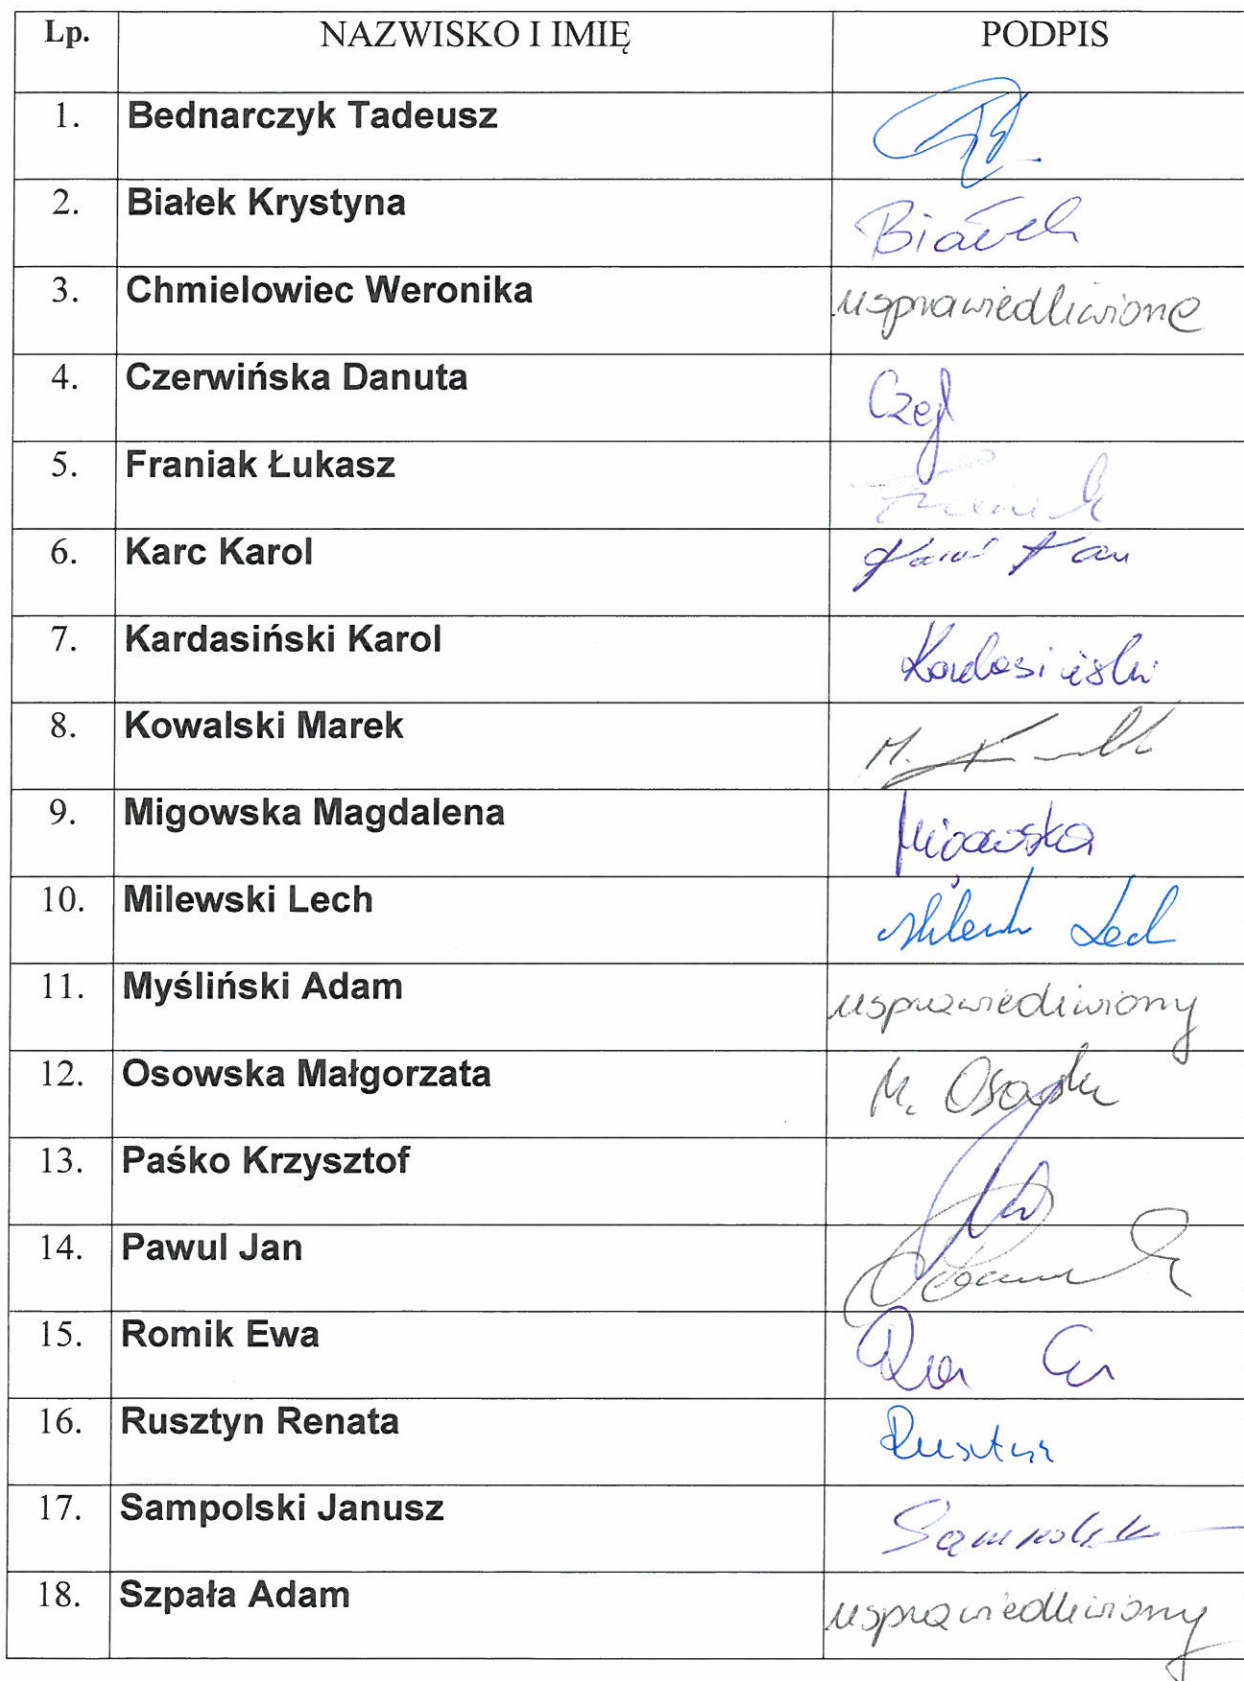 Lp. NAZWISKO I IMIĘ PODPIS
1. Bednarczyk Tadeusz
2. Białek Krystyna Białek
3. Chmielowiec Weronika usprawiedliwiona
4. Czerwińska Danuta
5. Franiak Łukasz
6. Karc Karol Karol Karc
7. Kardasiński Karol Kardasiński
8. Kowalski Marek M.
9. Migowska Magdalena Migowska
10. Milewski Lech Lech
11. Myśliński Adam usprawiedliwiony
12. Osowska Małgorzata M. Osowska
13. Paśko Krzysztof
14. Pawul Jan
15. Romik Ewa
16. Rusztyn Renata Rusztyn
17. Sampolski Janusz
18. Szpała Adam usprawiedliwiony